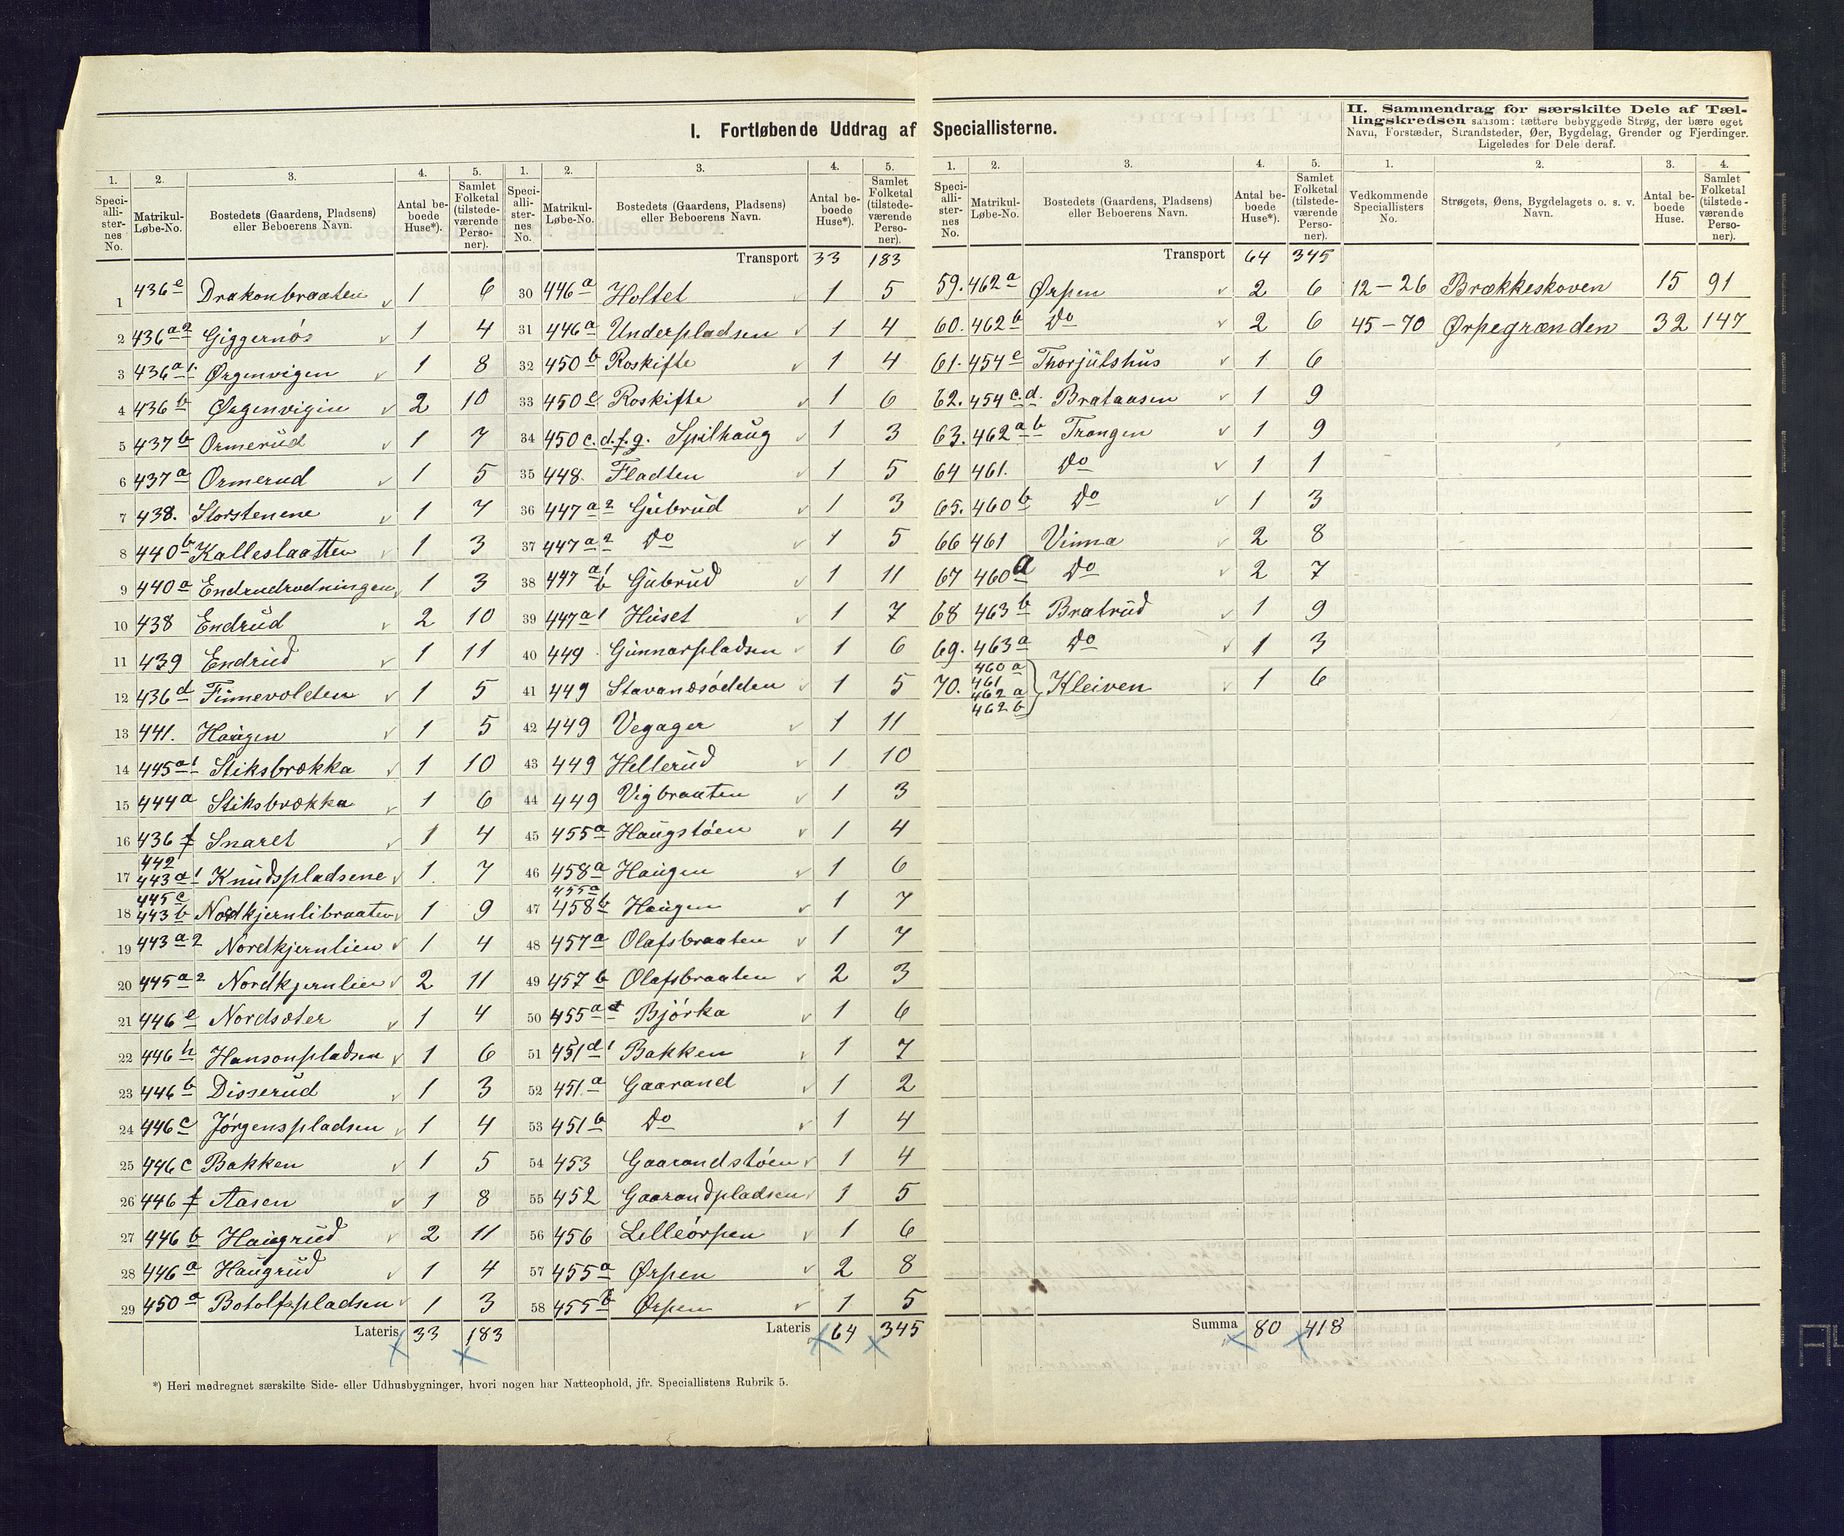 I. Fortløbende Uddrag af Speciallisterne.
II. Sammendrag for særskilte Dele af Tæl-
lingskredsen saasom: tættere bebyggede Strøg, der bære eget
Navn, Forstæder, Strandsteder, Øer, Bygdelag, Grender og Fjerdinger.
Ligeledes for Dele deraf.
1. 2. 3. 4. 5.
Speci-alli-ster-nes No. Matrikul-Løbe-No. Bostedets (Gaardens, Pladsens) eller Beboerens Navn. Antal be-boede Huse*). Samlet Folketal (tilstede-værende Perso-ner).
1 436e Drakonbraaten 1 6
2 436a2 Giggernös 1 4
3 436a1 Ørgenvigen 1 8
4 436b Ørgenvigin 2 10
5 437b Ormerud 1 7
6 437a Ormerud 1 5
7 438. Storstenene 1 7
8 440b Kalleslaatten 1 3
9 440a Endrudrudningen 1 3
10 438 Endrud 2 10
11 439 Endrud 1 11
12 436d Finnevolden 1 5
13 441. Haugen 1 5
14 445a1 Stiksbrækka 1 10
15 444a Stiksbrækka 1 6
16 436f Snaret 1 4
17 442 443a1 Knudspladsene 1 7
18 445c 443b Nordkjernlibraaten 1 9
19 443a2 Nordkjernlien 1 4
20 445a2 Nordkjernlien 2 11
21 446e Nordsæter 1 4
22 446h Hansonpladsen 1 6
23 446b Disserud 1 3
24 446c Jörgenspladsen 1 4
25 446c Bakken 1 5
26 446f Aasen 1 8
27 446b Haugrud 2 11
28 446a Haugrud 1 4
29 450a Botolfspladsen 1 3
Lateris 33 183
1. 2. 3. 4. 5.
Speci-alli-ster-nes No. Matrikul-Løbe-No. Bostedets (Gaardens, Pladsens) eller Beboerens Navn. Antal be-boede Huse*). Samlet Folketal (tilstede-værende Perso-ner).
Transport 33 183
30 446a Holtet 1 5
31 446a Underpladsen 1 4
32 450b Roskifte 1 4
33 450e Roskifte 1 6
34 450c.d.f.g. Spilhaug 1 3
35 448. Fladten 1 5
36 447a2 Gubrud 1 3
37 447a2 Do 1 5
38 447a1b Gubrud 1 11
39 447a1 Huset 1 7
40 449. Gunnarpladsen 1 6
41 449 Stavanæsödden 1 5
42 449 Vegager 1 11
43 449 Hellerud 1 10
44 449 Vigbraaten 1 3
45 455a Haugstöen 1 4
46 458a Haugen 1 6
47 455a 458b Haugen 1 7
48 457a Olafsbraaten 1 7
49 457b Olafsbraaten 2 3
50 455ad Björka 1 6
51 451d1 Bakken 1 7
52 451a Gaarand 1 2
53 451b Do 1 4
54 453 Gaarandstöen 1 4
55 452 Gaarandpladsen 1 5
56 456 Lilleörpen 1 6
57 455a Ørpen 2 8
58 455b Ørpen 1 5
Lateris 64 345
1. 2. 3. 4. 5.
Speci-alli-ster-nes No. Matrikul-Løbe-No. Bostedets (Gaardens, Pladsens) eller Beboerens Navn. Antal be-boede Huse*). Samlet Folketal (tilstede-værende Perso-ner).
Transport 64 345
59. 462a Ørpen 2 6
60. 462b Do 2 6
61. 454e Thorjulshus 1 6
62. 454c.d. Brataasen 1 9
63. 462ab Trangen 1 9
64 461. Do 1 1
65. 460b Do 1 3
66 461 Vinna 2 8
67 460a Do 2 7
68 463b Bratrud 1 9
69. 463a Do 1 3
70. 460a 461 462a 462b Kleiven 1 6
Summa 80 418
1. 2. 3. 4.
Vedkommende Speciallisters No. Strøgets, Øens, Bygdelagets o. s. v. Navn. Antal be-boede Huse. Samlet Folketal (tilstede-værende Perso-ner).
12-26 Brækkeskoven 15 91
45-70 Ørpegrænden 32 147
*) Heri medregnet særskilte Side- eller Udhusbygninger, hvori nogen har Natteophold, jfr. Speciallistens Rubrik 5.